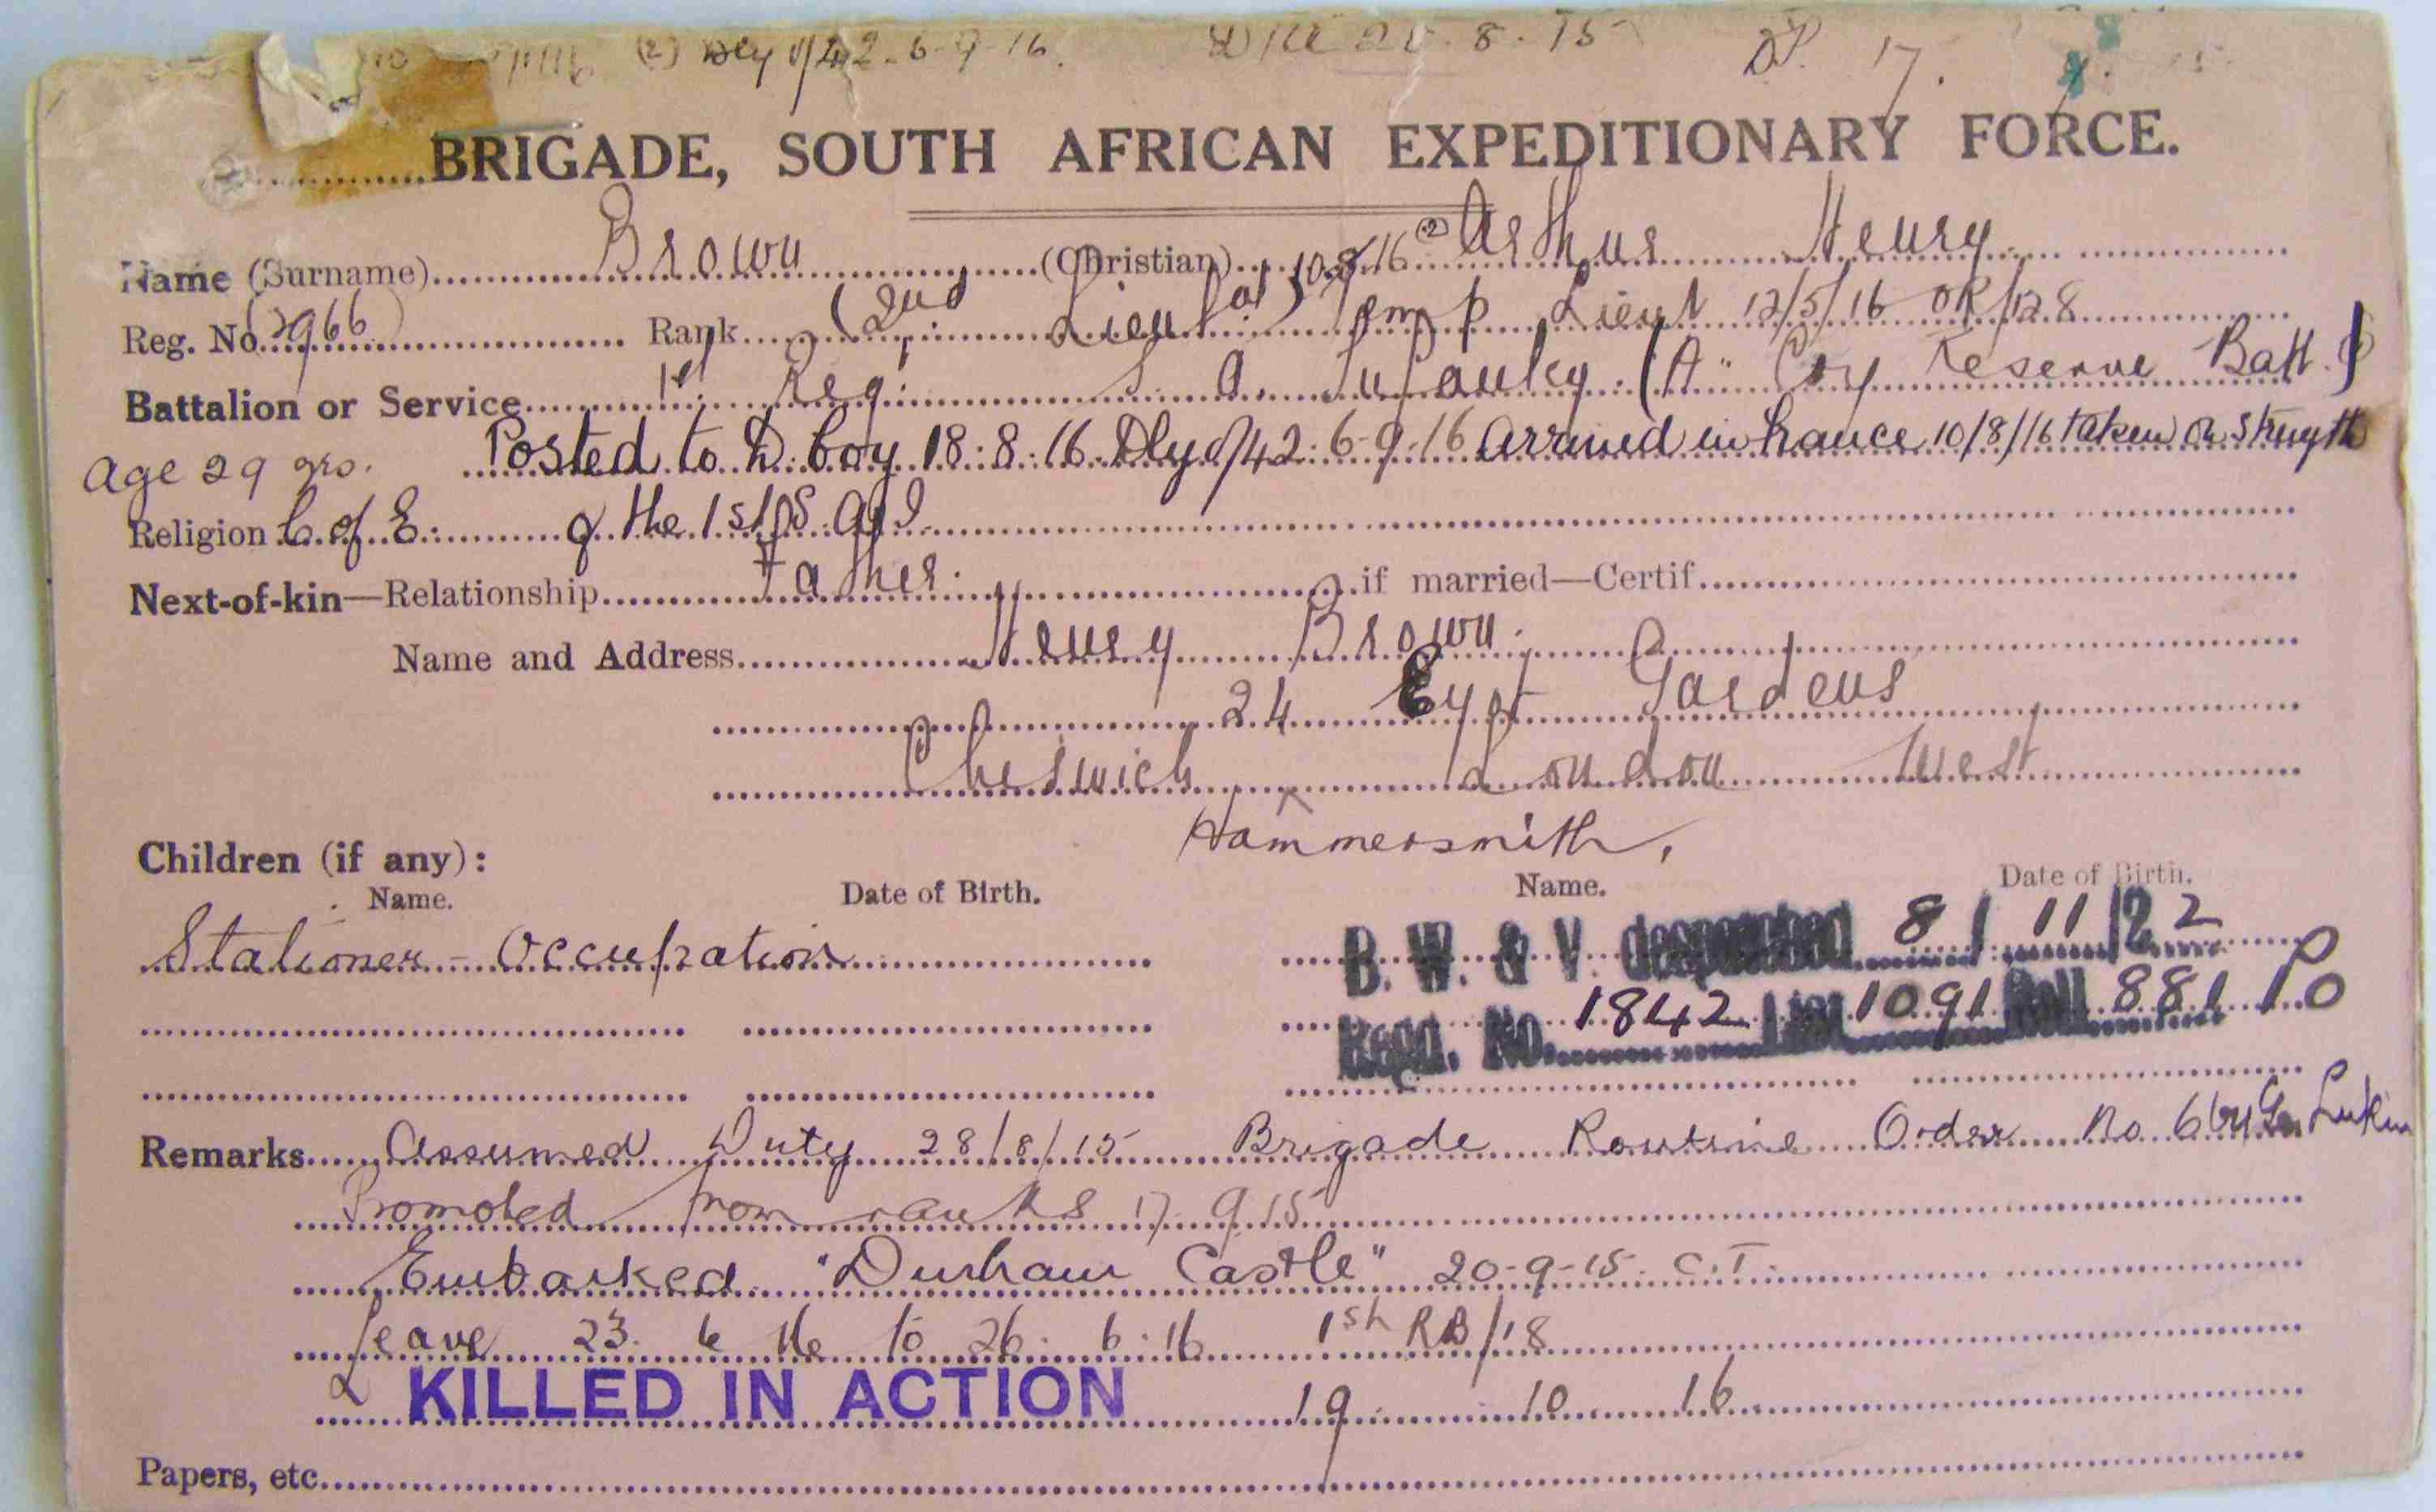 (2) Dly 0/42. 6-9-16. 8.15 17.
BRIGADE, SOUTH AFRICAN EXPEDITIONARY FORCE.
Name (Surname) Brown (Christian) 10.8.16 (2) Arthur Henry
Reg. No. (2966) Rank (2nd Lieut) Temp Lieut 12/5/16 OR/128
Battalion or Service 1st Reg. S. A. Infantry. (A" Coy Reserve Batt.)
Age 29 yrs. Posted to D. Coy 18.8.16 Dly 0/42. 6-9-16 Arrived in France 10/8/16 taken on strength
Religion C. of E. of the 1st S A I
Next-of-kin—Relationship Father. if married—Certif.
Name and Address Henry Brown.
24 Gardens
Cheswick London West
Hammersmith,
Children (if any):
Name. Date of Birth. Name. Date of Birth.
Stationer - Occupation B. W. & V. despatched 8/11/22
Regd. No. 1842 List 1091 Roll 881
Remarks Assumed Duty 28/8/15 Brigade Routine Order No 6 by Gen Lukin
Promoted from ranks 17.9.15
Embarked "Durham Castle" 20-9-15. C.T.
Leave 23. 6 16 to 26. 6.16 1st RB/18
KILLED IN ACTION 19 10 16
Papers, etc.